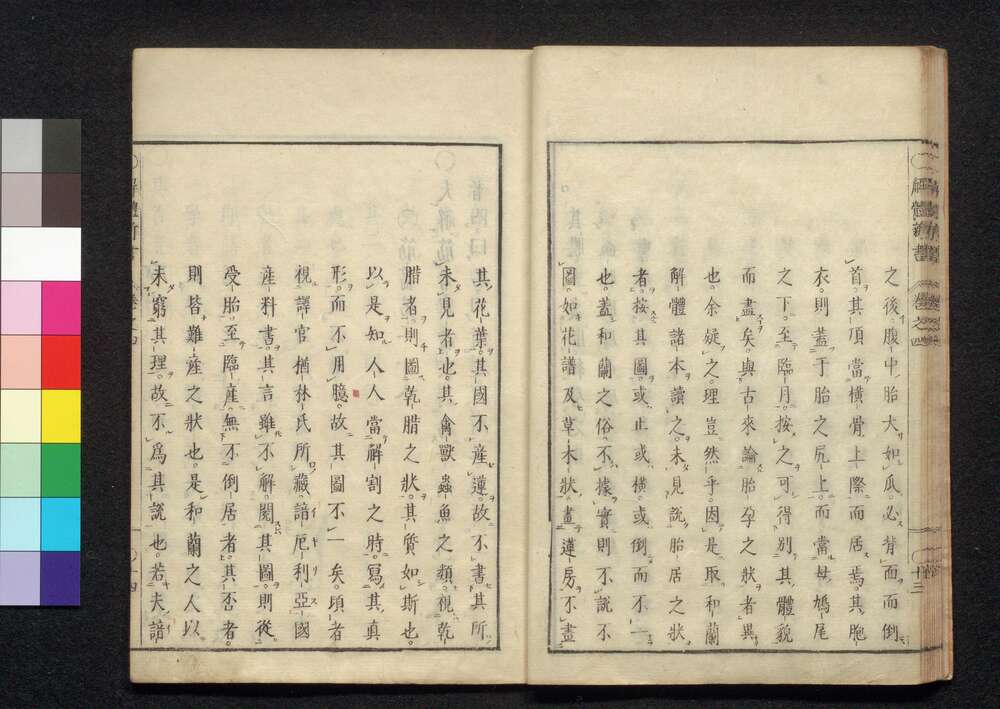 之後腹中胎大如瓜。必背面而倒
首。其頂當橫骨上際而居焉。其胞
衣。則蓋于胎之尻上。而當母鳩尾
之下。至臨月。按之可得別其體貌
而盡矣。與古來論胎孕之狀者異
也。余疑之。理豈然乎。因是取和蘭
解體諸本讀之。未見說胎居之狀
者。按其圖。或止或橫或倒。而不一
也。蓋和蘭之俗。不據實則不說。不
圖。如花譜及草木狀。畫蓮房。不畫
解體新書
卷之四
十三
其花葉。其國不產蓮。故不書其所
未見者也。其禽獸蟲魚之類。視乾
腊者。則圖乾腊之狀。其質如斯也。
以是知人人當解割之時。寫其真
形。而不用臆。故其圖不一矣。頃者
視譯官楢林氏所藏諳厄利亞國
產科書。其言雖不解。閱其圖。則從
受胎至臨產。無不倒居者。其否者。
則皆難產之狀也。是和蘭之人以
未窮其理。故不爲其說也。若夫諳